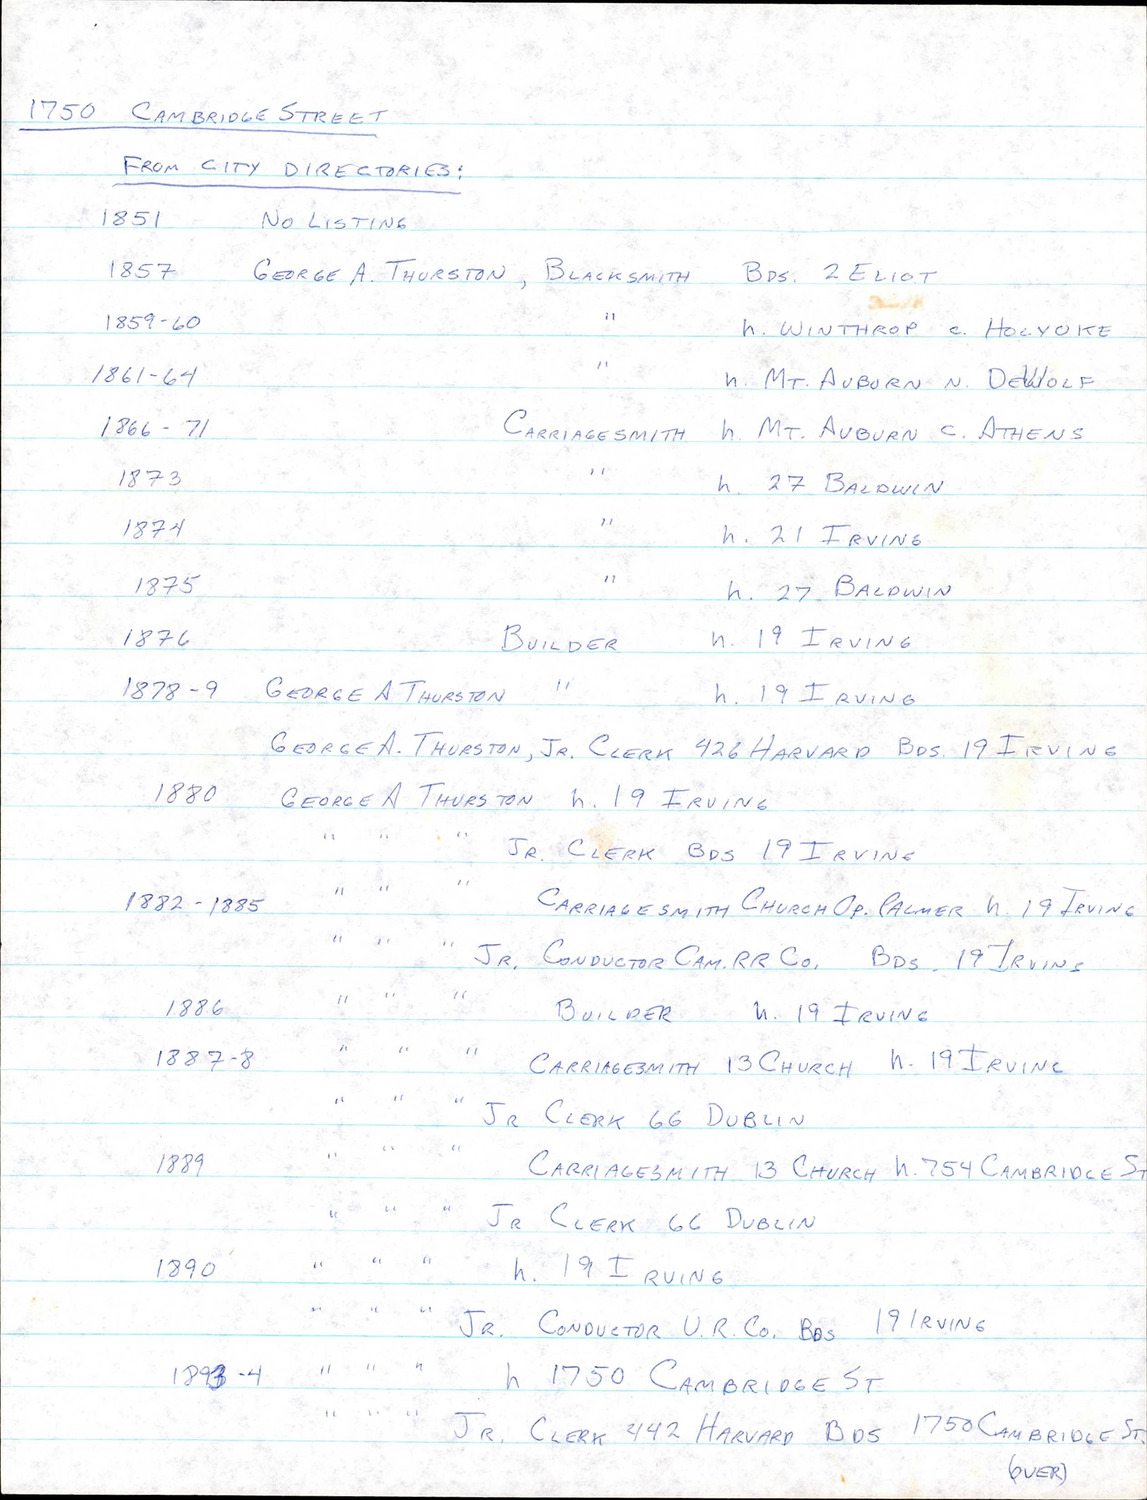 1750 CAMBRIDGE STREET
FROM CITY DIRECTORIES:
1851 NO LISTING
1857 GEORGE A. THURSTON, BLACKSMITH BDS. 2 ELIOT
1859-60 " h. WINTHROP c. HOLYOKE
1861-64 " h. MT. AUBURN N. DEWOLF
1866-71 CARRIAGESMITH h. MT. AUBURN C. ATHENS
1873 " h. 27 BALDWIN
1874 " h. 21 IRVING
1875 " h. 27 BALDWIN
1876 BUILDER h. 19 IRVING
1878-9 GEORGE A THURSTON " h. 19 IRVING
GEORGE A. THURSTON, JR. CLERK 426 HARVARD BDS. 19 IRVING
1880 GEORGE A THURSTON h. 19 IRVING
" " " JR. CLERK BDS 19 IRVING
1882-1885 " " " CARRIAGESMITH CHURCH OP. PALMER h. 19 IRVING
" " " JR. CONDUCTOR CAM. RR CO. BDS. 19 IRVING
1886 " " " BUILDER h. 19 IRVING
1887-8 " " " CARRIAGESMITH 13 CHURCH h. 19 IRVING
" " " JR CLERK 66 DUBLIN
1889 " " " CARRIAGESMITH 13 CHURCH h. 754 CAMBRIDGE ST
" " " JR CLERK 66 DUBLIN
1890 " " " h. 19 IRVING
" " " JR. CONDUCTOR U.R. CO. BDS 19 IRVING
1893-4 " " " h 1750 CAMBRIDGE ST
" " " JR. CLERK 442 HARVARD BDS 1750 CAMBRIDGE ST.
(OVER)